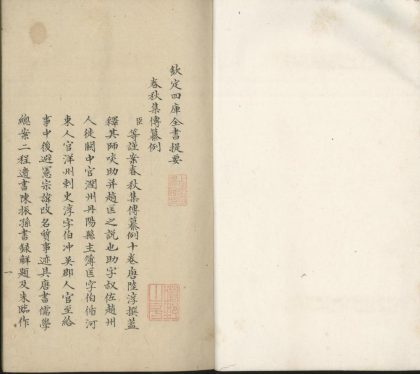 欽定四庫全書提要
春秋集傳纂例
臣等謹案春秋集傳纂例十卷唐陸淳撰蓋
釋其師啖助并趙匡之說也助字叔佐趙州
人徙關中官潤州丹陽縣主簿匡字伯循河
東人官洋州刺史淳字伯沖吳郡人官至給
事中後避憲宗諱改名質事迹具唐書儒學
傳案二程遺書陳振孫書錄解題及朱臨作
一